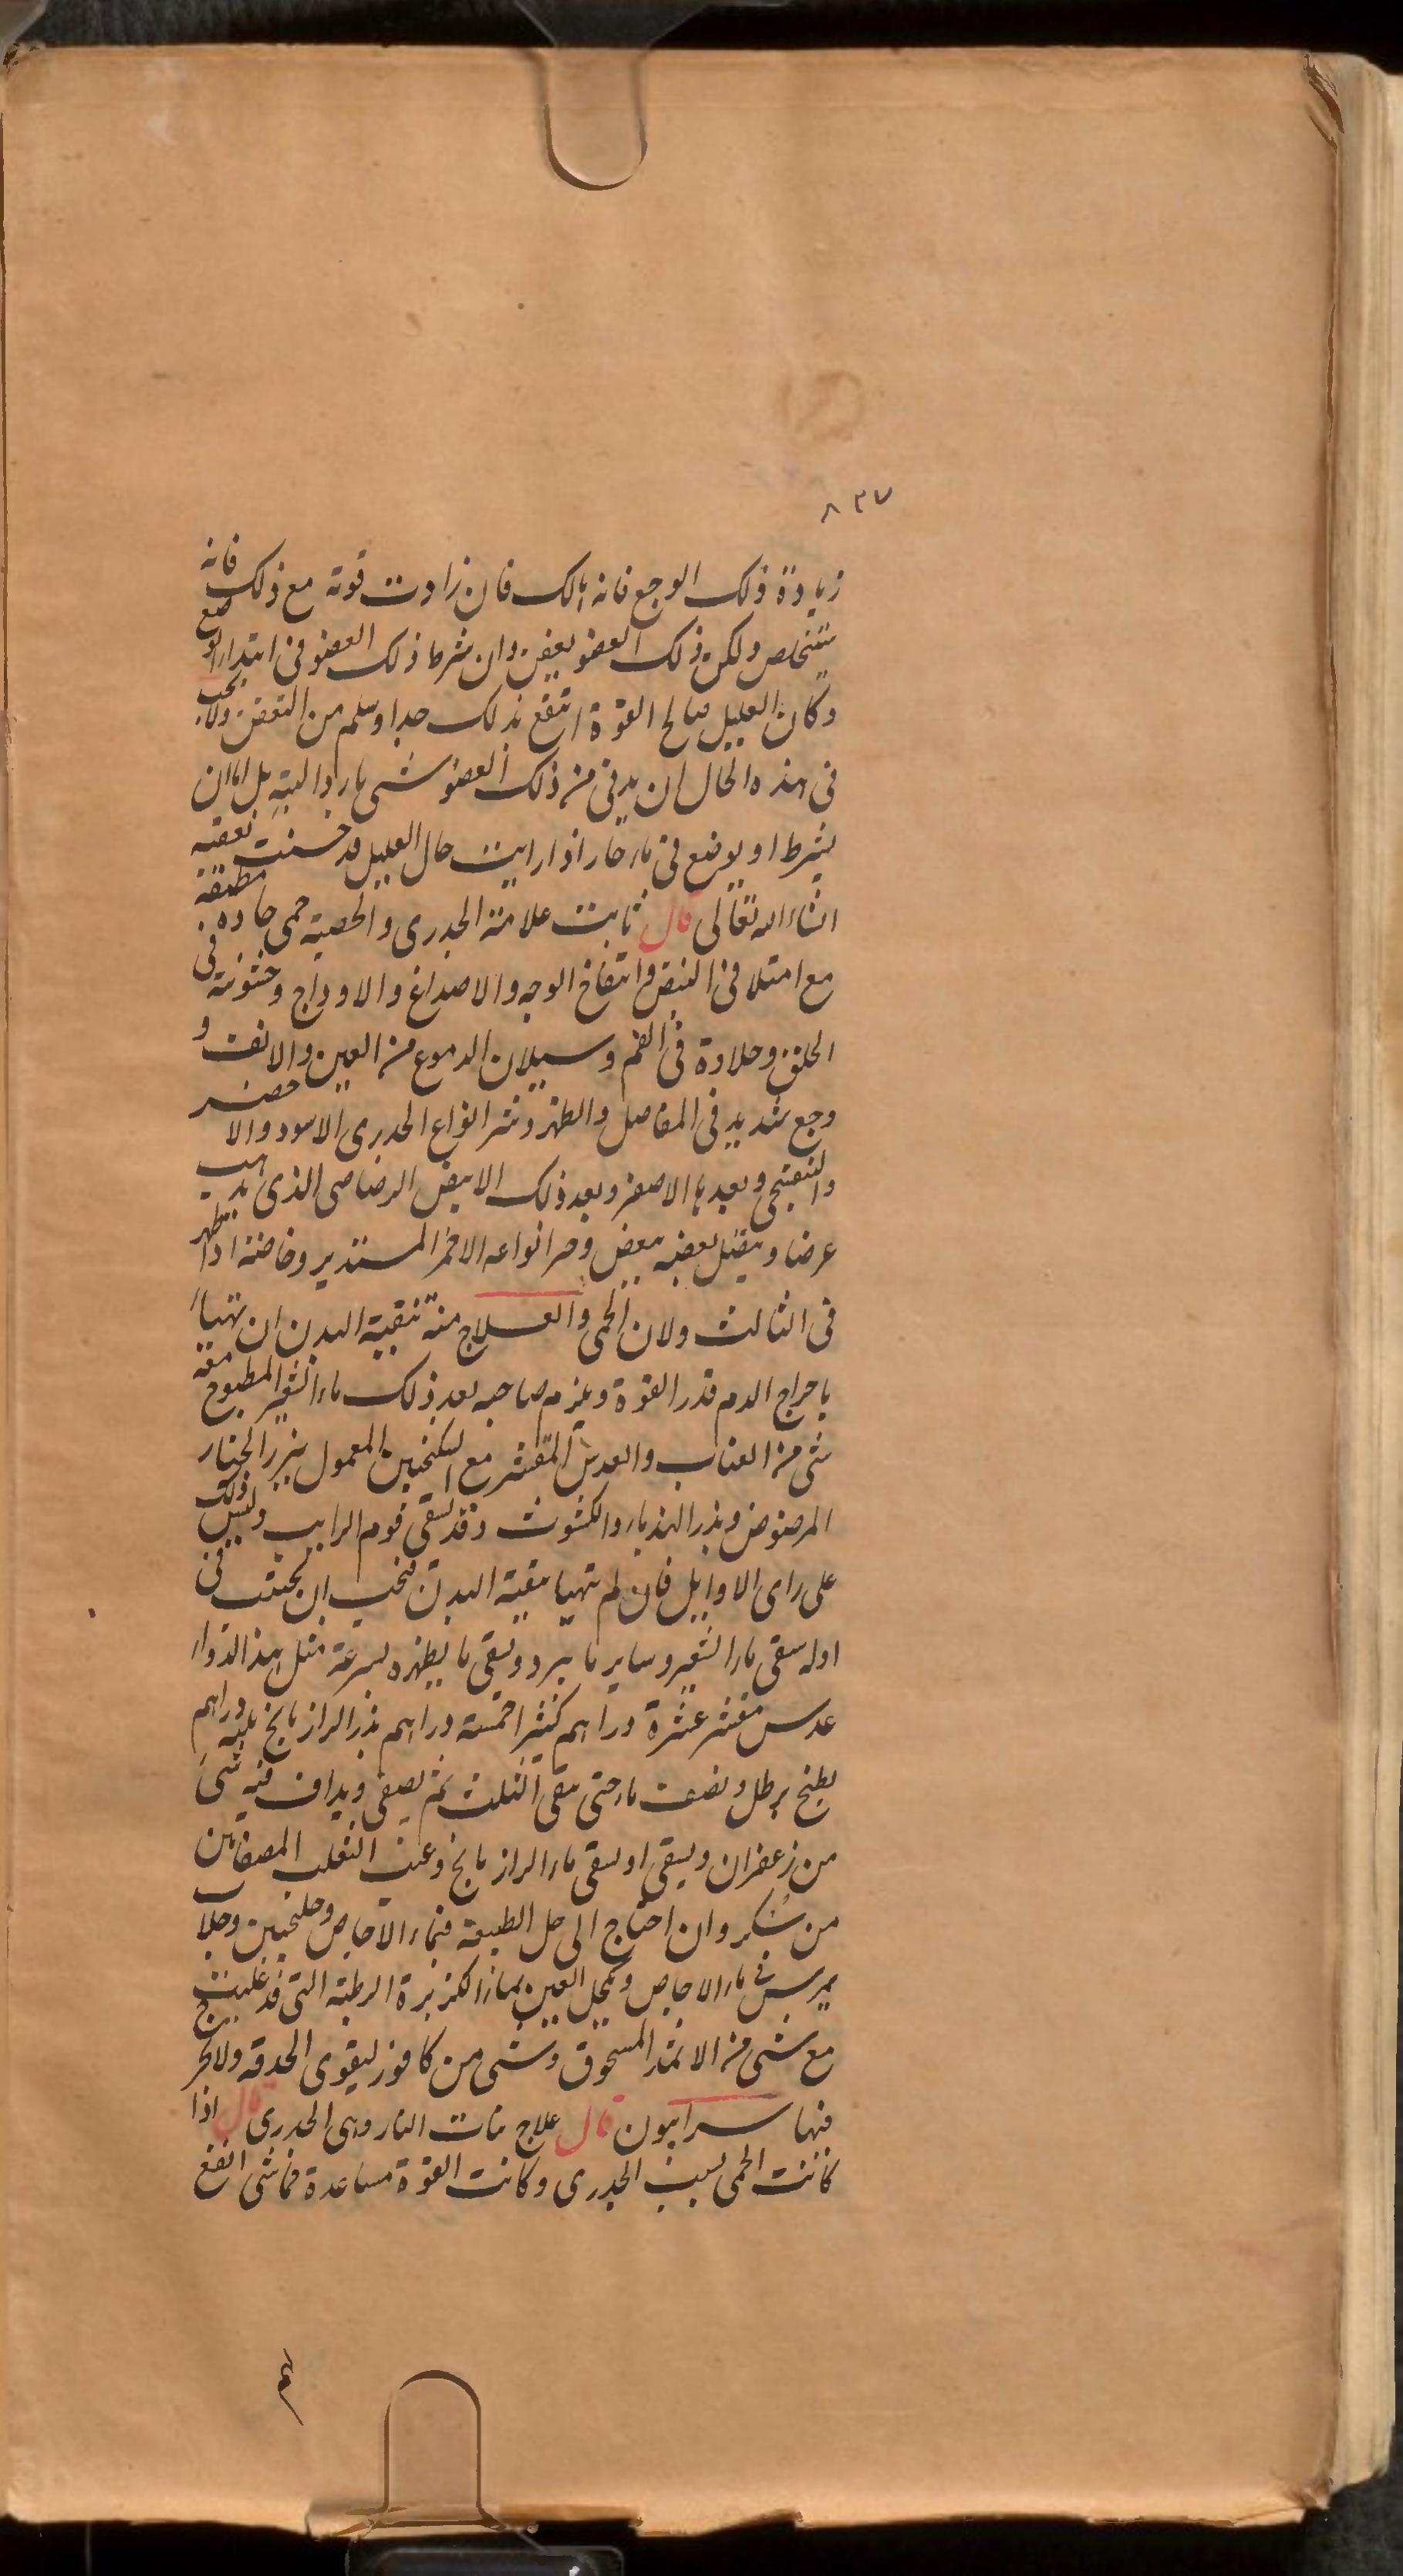 ٨٣٧
زيادة ذلك الوجع فانه هالك فان زادت قوته مع ذلك فانه
يتخلص ولكن ذلك العضو يعفن وان شرط ذلك العضو فى ابتداء الوجع
وكان العليل صالح القوة انتفع بذلك جدا وسلم من التعفن ولا يجب
فى هذه الحال ان يدنى من ذلك العضو شى بارد البته بل اما ان
يشرط او يوضع فى ماء حار اذا رايت حال العليل قد حسنت
انشاء الله تعالى قال ثابت علامة الجدرى والحصبة حمى حاده مطبقة
مع امتلا فى النبض وانتفاخ الوجه والاصداغ والاوداج وخشونة فى
الحلق وحلاوة فى الفم وسيلان الدموع من العين والانف و
وجع شديد فى المفاصل والظهر وشر انواع الجدرى الاسود والاخضر
والبنفسجى وبعدها الاصفر وبعد ذلك الابيض الرصاصى الذى يذهب
عرضا ويتصل بعضه ببعض وخير انواعه الاحمر المستدير وخاصة اذا ظهر
فى الثالث ولان الحمى والعلاج منه تنقية البدن ان تهيا
باخراج الدم قدر القوة ويلزم صاحبه بعد ذلك ماء الشعير المطبوخ معه
شى من العناب والعدس المقشر مع السكنجبين المعمول ببزر الخيار
المرضوض وبذر الهندباء والكشوث وقد يسقى قوم الرايب وليس ذلك
على راى الاوايل فان لم تهيا تنقية البدن فيجب ان يجتنب فى
اوله سقى ماء الشعير وساير ما يبرد ويسقى ما يظهره بسرعة مثل هذا الدواء
عدس مقشر عشرة دراهم كثيرا خمسة دراهم بذر الرازيانج ثلثه دراهم
يطبخ برطل ونصف ماء حتى يبقى الثلث ثم يصفى ويداف فيه شى
من زعفران ويسقى او يسقى ماء الرازيانج وعنب الثعلب المصفاتين
من سكر وان احتاج الى حل الطبيعة فبماء الاجاص وجلنجبين وجلاب
يمرس فى ماء الاجاص ويكحل العين بماء الكزبرة الرطبة التى قد غليت
مع شى من الاثمد المسحوق وشى من كافور ليقوى الحدقه ولا يخرج
فيها سرابيون قال علاج بنات النار وهى الجدرى قال اذا
كانت الحمى بسبب الجدرى وكانت القوة مساعدة فما شى انفع